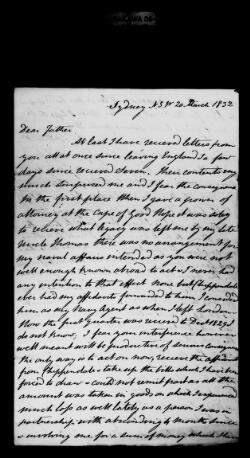 Sydney N.S.W 20 March 1832
Dear Father
At last I have received letters from
you all at once since leaving England & a few
days since received Seven. Their contents very
much surprised me and I fear the
In the first place When I gave a power of
attorney at the Cape of Good Hope it was only
to receive what legacy was left me by my late
Uncle Thomas there was no arrangement for
my naval affairs intended as you were not
well enough known abroad to act & I never had
any intention to that effect More but Chippendale
ever had my affidavit forwarded to him I consider
him as my Navy agent as when I left London
How the first quarter was received to Decr 1827 I
do not know, I fear your interference however
well meant will be productive of serious
the only way is to act on now, receive the affidavit
from Chippendale & take up the bills which I have been
forced to draw & could not remit part as all the
amount was taken in goods on which I experienced
much loss as well lately as a person I was in
partnership with absconding months since
& involving me for a sum of money which I have